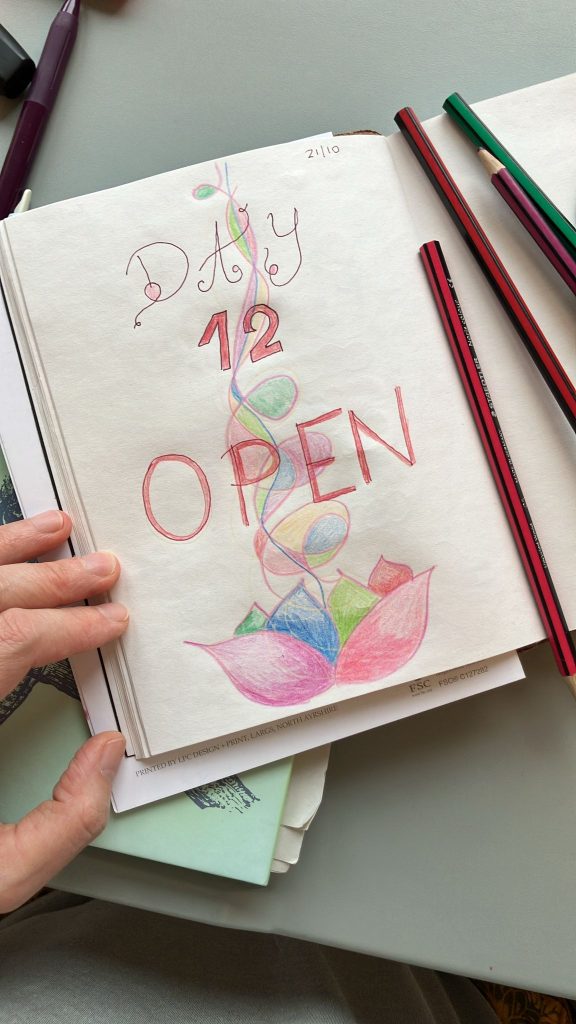 21/10
DAY
12
OPEN
FSC
FSC® C127282
PRINTED BY LPC DESIGN + PRINT, LARGS, NORTH AYRSHIRE